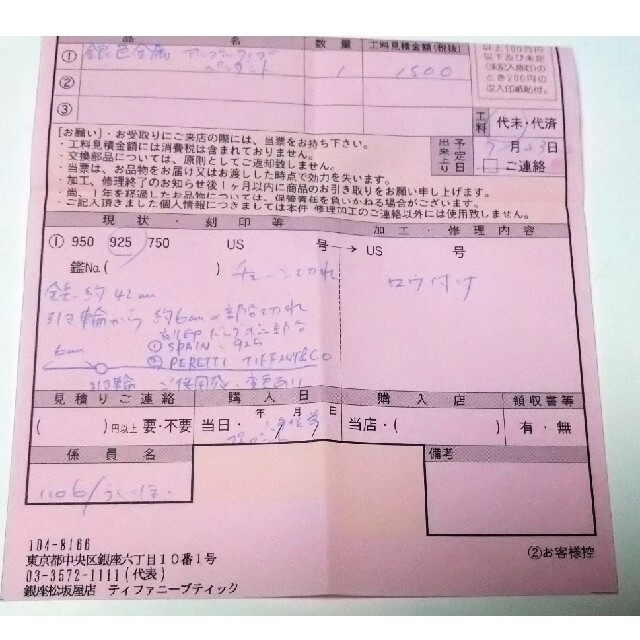 品 名 数量 工料見積金額(税抜)
① 銀色金属
1 1500
②
③
以上100万円
以下及び未定
(未記入含む)の
とき200円の
収入印紙貼付。
工料 代未・代済
出来上り予定日 月 日
□ ご連絡
[お願い]・お受取りにご来店の際には、当票をお持ち下さい。
・工料見積金額には消費税は含まれておりません。
・交換部品については、原則としてご返却致しません。
・当票は、お品物をお届け又はお渡しした時点で効力を失います。
・加工、修理終了のお知らせ後1ヶ月以内に商品のお引き取りをお願い申し上げます。
尚、1年を経過したお品物については、保管責任を負いかねる場合がございます。
・ご記入頂きました個人情報につきましては本件 修理加工のご連絡以外には使用致しません。
現状・刻印等 加工・修理内容
① 950 925 750 US 号→US 号
鑑No.( )
チェーン切れ
ロウ付け
全長 約42cm
引き輪から 約6cmの部分切れ
①SPAIN. 925
②PERETTI TIFFANY&CO
6cm
引き輪 ご使用感・変色あり
見積りご連絡 購入日 購入店 領収書等
( )円以上 要・不要 当日・ 年 月 日 当店・( ) 有・無
係員名
備考
1106/
②お客様控
104-8166
東京都中央区銀座六丁目10番1号
03-3572-1111(代表)
銀座松坂屋店 ティファニーブティック